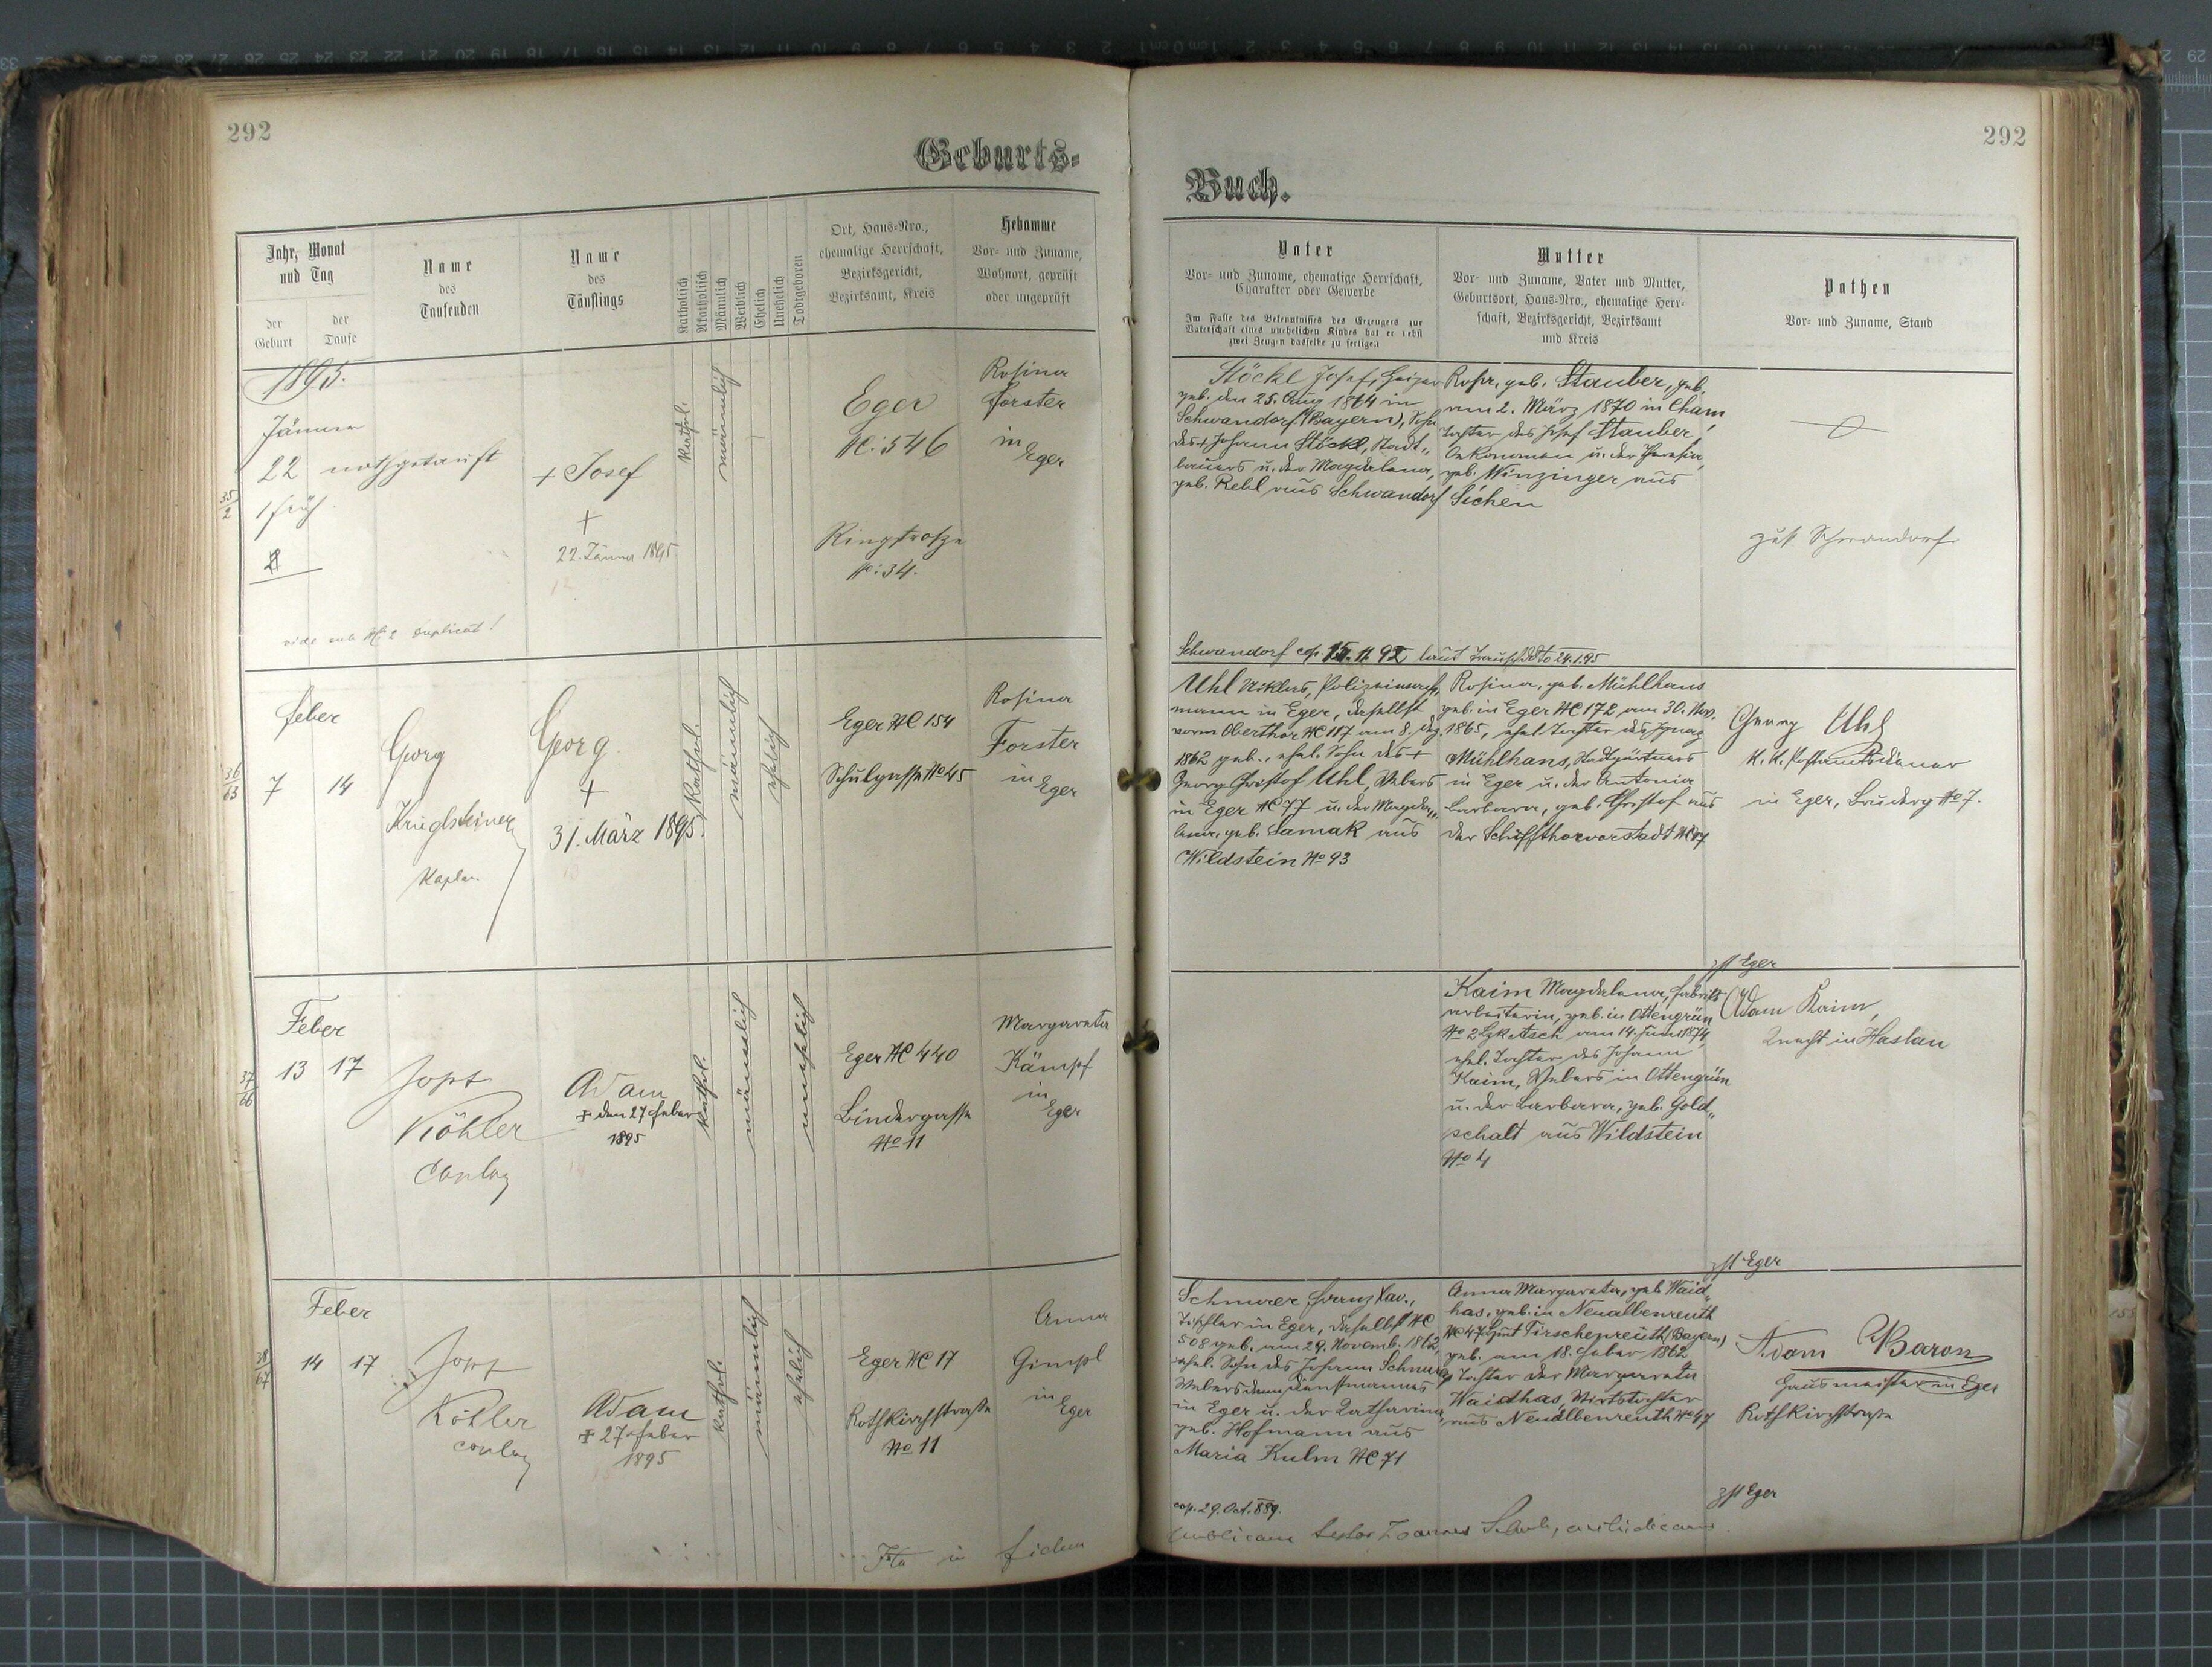 292
Geburts-
Jahr, Monat
und Tag
der
Geburt
der
Taufe
Name
des
Taufenden
Name
des
Täuflings
Katholisch
Akatholisch
Männlich
Weiblich
Ehelich
Unehelich
Todtgeboren
Ort, Haus-Nro.,
ehemalige Herrschaft,
Bezirksgericht,
Bezirksamt, Kreis
Hebamme
Vor- und Zuname,
Wohnort, geprüft
oder ungeprüft
1895.
Jänner
22 nothgetauft
1 früh
35
2
+ Josef
+
22. Jänner 1895
kathol.
männlich
Eger
NC: 546
Ringstraße
No: 34.
Rosina
Forster
in
Eger
vide sub No 2 Duplicat!
Feber
7 14
36
63
Georg
Krieglsteiner
Kaplan
Georg.
+
31. März 1895.
Kathol.
männlich
ehelich
Eger NC 154
Schulgasse No 45
Rosina
Forster
in
Eger
Feber
13 17
37
66
Jopt
Köhler
Adam
+ den 27 Feber
1895
kathol.
männlich
unehelich
Eger NC 440
Bindergasse
No 11
Margareta
Kämpf
in
Eger
Feber
14 17
38
67
Köhler
Adam
+ 27. Feber
1895
kathol.
männlich
ehelich
Eger NC 17
Rothkirchstraße
No 11
Anna
Gimpl
in
Eger
Ita in fidem
292
Buch.
Vater
Vor- und Zuname, ehemalige Herrschaft,
Charakter oder Gewerbe
Im Falle des Bekenntnisses des Erzeugers zur
Vaterschaft eines unehelichen Kindes hat er nebst
zwei Zeugen dasselbe zu fertigen
Mutter
Vor- und Zuname, Vater und Mutter,
Geburtsort, Haus-Nro., ehemalige Herr-
schaft, Bezirksgericht, Bezirksamt
und Kreis
Pathen
Vor- und Zuname, Stand
Stöckl Josef, Heizer
geb. den 25. Aug 1864 in
Schwandorf (Bayern), Sohn
des + Johann Stöckl, Stadt„
bauers u. der Magdalena,
geb. Rebl aus Schwandorf
Rosa, geb. Stauber, geb.
am 2. März 1870 in Cham,
Tochter des Josef Stauber,
Oekonomen u. der Theresia,
geb. Winzinger aus
Sichen
zust Schwandorf
Schwandorf cop. 15. 11. 92 laut Trausch. ddto 24.1.95
Uhl Niklas, Polizeiwach„
mann in Eger, daselbst
vorm Oberthor NC 117 am 8. Dez.
1862 geb., ehel. Sohn des +
Georg Christof Uhl, Webers
in Eger NC 77 u. der Magda„
lena, geb. Samak aus
Wildstein No 93
Rosina, geb. Mühlhans
geb. in Eger NC 172 am 30. Nov.
1865, ehel. Tochter des Ignaz
Mühlhans, Stadtgärtners
in Eger u. der Antonia
Barbara, geb. Christof aus
der Schiffthorvorstadt NC 17
Georg Uhl
k. k. Postamtsdiener
in Eger, Bruderg No 7.
zst Eger
Kaim Magdalena, Fabriks
arbeiterin, geb. in Ottengrün
No 2 Bzk Asch am 14. Juni 1874,
ehel. Tochter des Johann
Kaim, Webers in Ottengrün
u. der Barbara, geb. Gold„
schalt aus Wildstein
No 4
Adam Kaim,
Knecht in Haslau
zst Eger
Schnurer Franz Xav.,
Tischler in Eger, daselbst NC
508 geb. am 29. Novemb. 1862,
ehel. Sohn des Johann Schnurer
in Eger u. der Katharina
geb. Hofmann aus
Maria Kulm NC 71
Anna Margareta, geb. Waid„
has, geb. in Neualbenreuth
NC 47 Amt Tirschenreuth (Bayern)
geb. am 18. Feber 1862
Tochter der Margareta
Waidhas, Wirtstochter
aus Neualbenreuth No 47
Adam Baron
Hausmeister in Eger
Rothkirchstraße
cop. 29. Oct. 889.
zst Eger
publicam testor Joannes